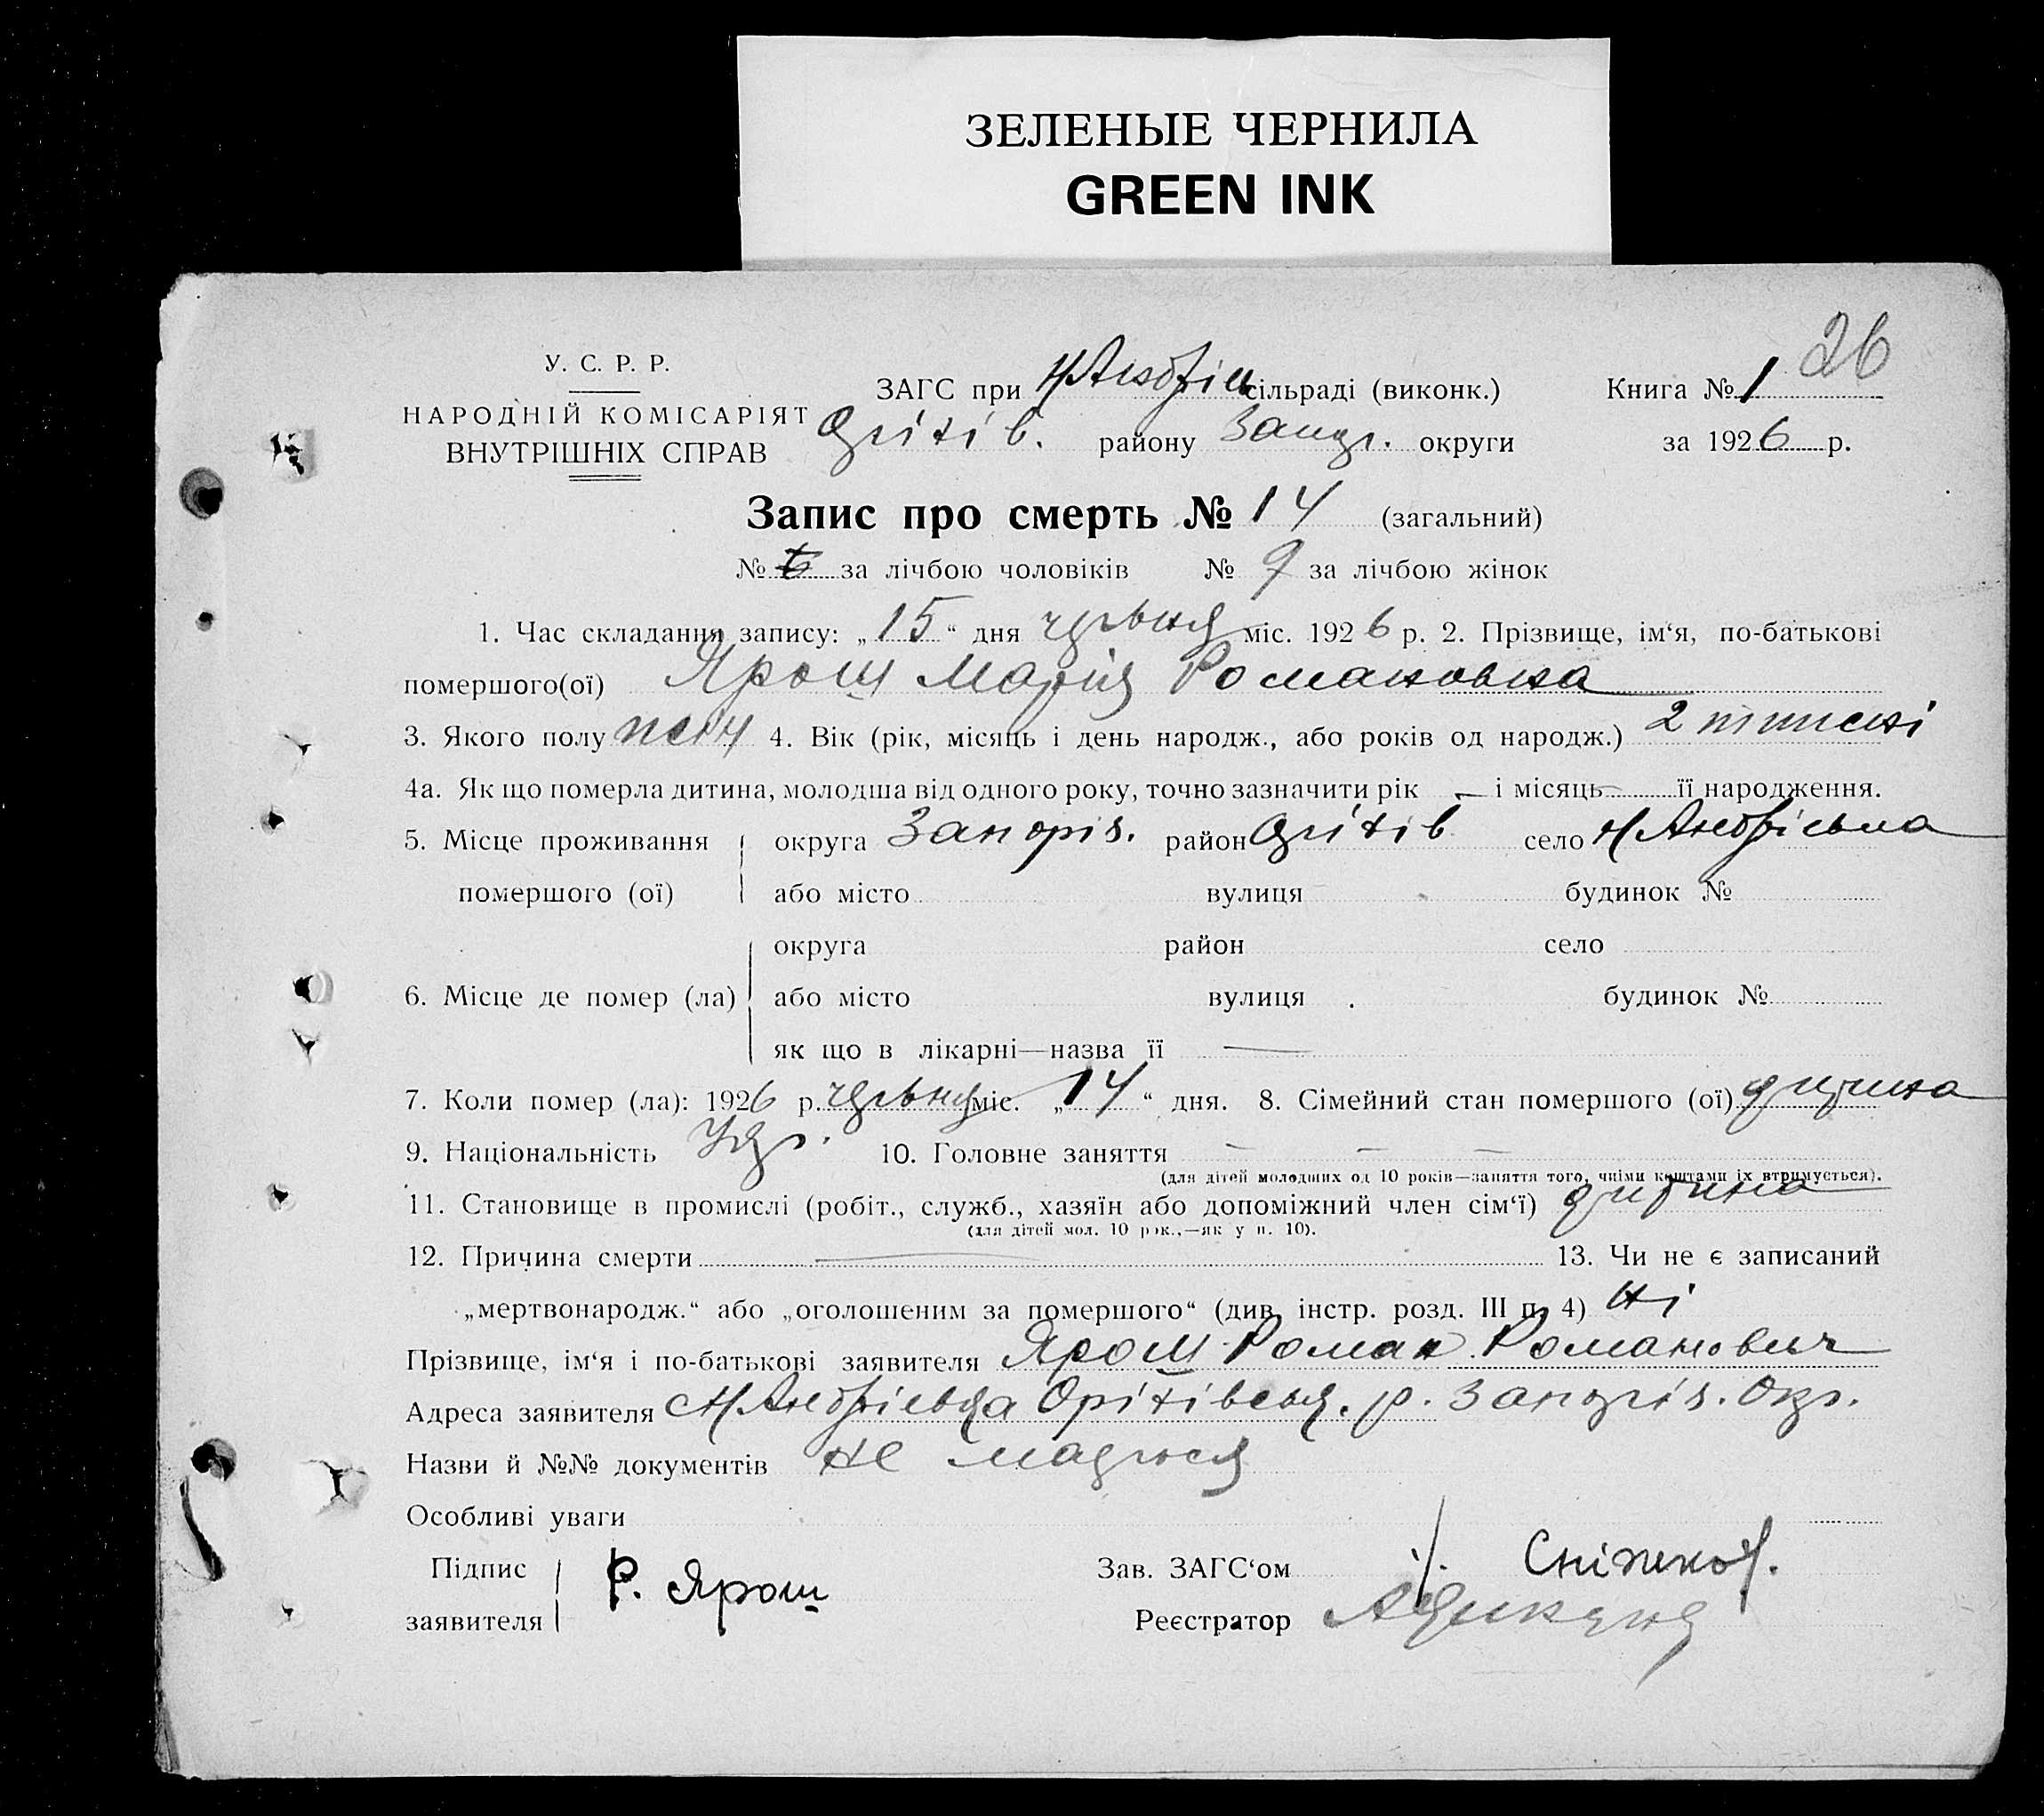 ЗЕЛЕНЫЕ ЧЕРНИЛА
GREEN INK
26
У. С. Р. Р.
НАРОДНІЙ КОМІСАРІЯТ
ВНУТРІШНІХ СПРАВ
ЗАГС при Н Андріїв сільраді (виконк.) Книга № 1
Оріхів. району Запор. округи за 1926 р.
Запис про смерть № 14 (загальний)
№ за лічбою чоловіків № 9 за лічбою жінок
1. Час складання запису: „15“ дня червня міс. 1926 р. 2. Прізвище, ім‘я, по-батькові
помершого(ої) Ярош Марія Романовна
3. Якого полу жін 4. Вік (рік, місяць і день народж., або років од народж.) 2 тижні
4а. Як що померла дитина, молодша від одного року, точно зазначити рік — і місяць — її народження.
5. Місце проживання округа Запоріз. район Оріхів село Н Андрієвка
помершого (ої) або місто вулиця будинок №
округа район село
6. Місце де помер (ла) або місто вулиця будинок №
як що в лікарні—назва її —
7. Коли помер (ла): 1926 р. червня міс. „14“ дня. 8. Сімейний стан помершого (ої) дитина
9. Національність Укр. 10. Головне заняття — — —
(для дітей молодших од 10 років—заняття того, чиїми коштами їх втримується).
11. Становище в промислі (робіт., служб., хазяїн або допоміжний член сім‘ї) дитина
(для дітей мол. 10 рок.,—як у п. 10).
12. Причина смерти — 13. Чи не є записаний
„мертвонародж.“ або „оголошеним за помершого“ (див. інстр. розд. III п. 4) Ні
Прізвище, ім‘я і по-батькові заявителя Ярош Роман Романович
Адреса заявителя с Н/Андрієвка Оріхівськ. р. Запоріз. Окр.
Назви й №№ документів не мається
Особливі уваги
Підпис заявителя Р. Ярош
Зав. ЗАГС‘ом
Реєстратор